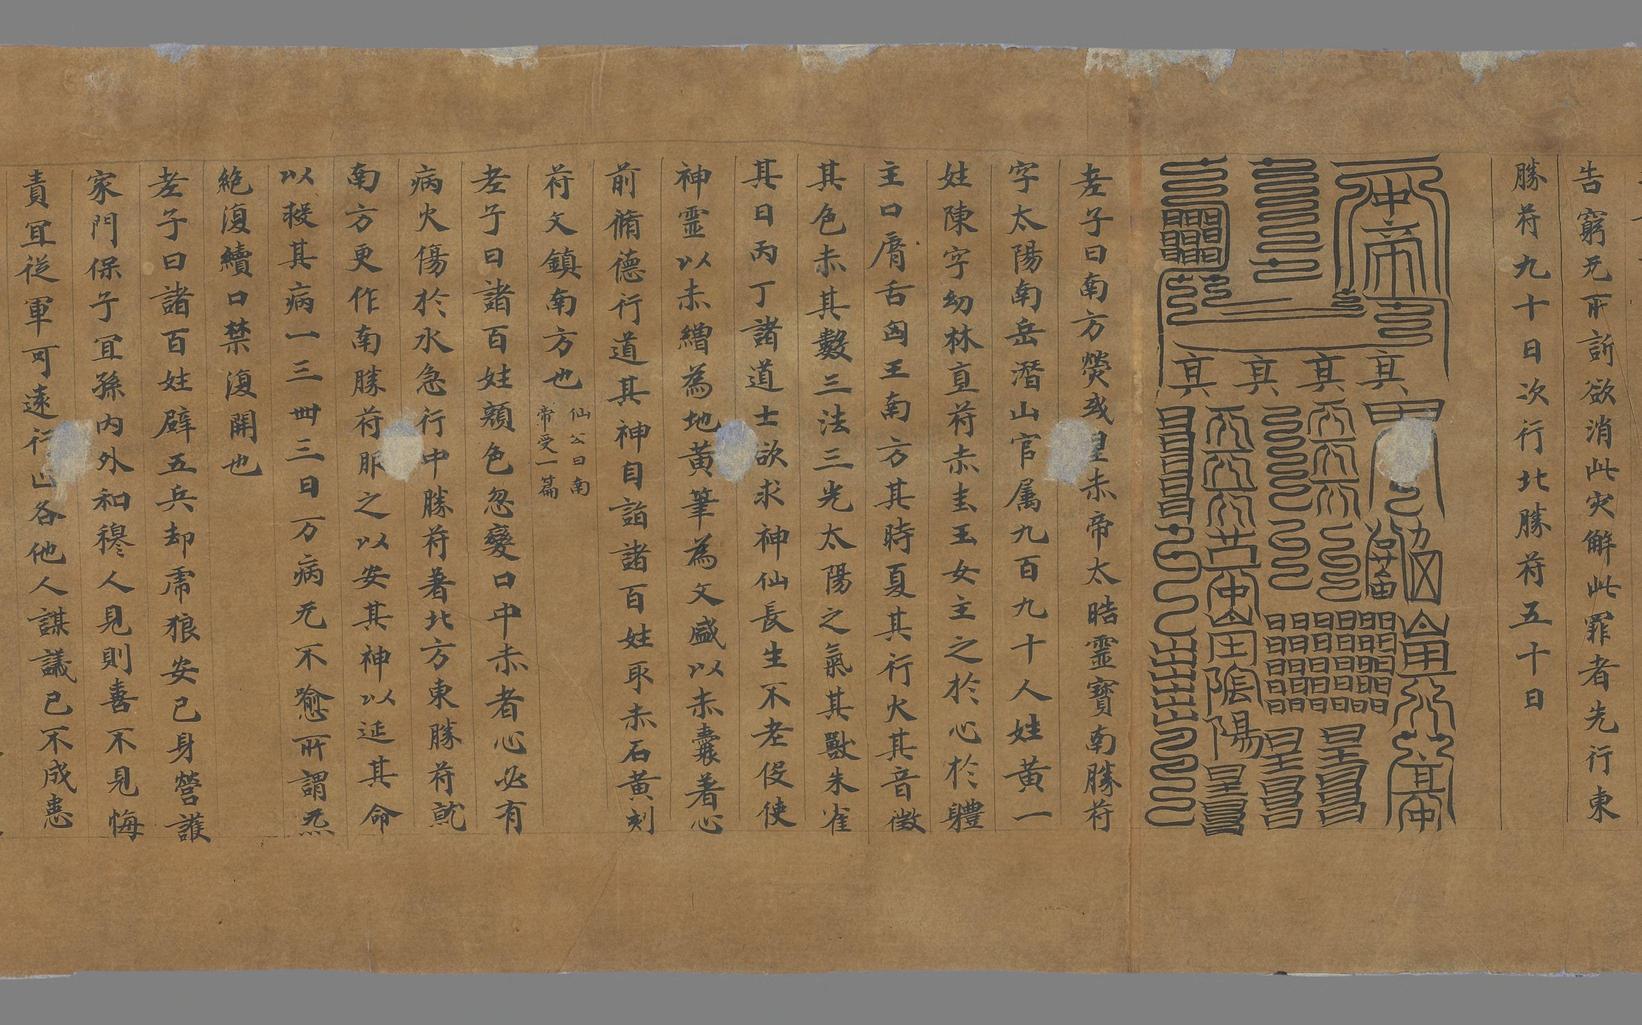 告窮无所訴欲消此灾解此罪者先行東
勝符九十日次行北勝符五十日
老子曰南方熒或皇赤帝太晧靈寶南勝符
字太陽南岳潛山官属九百九十人姓黄一
姓陳字幼林直符赤圭玉女主之於心於體
主口脣舌囟王南方其時夏其行火其音徴
其色赤其數三法三光太陽之氣其獸朱雀
其日丙丁諸道士欲求神仙長生不老役使
神靈以赤繒為地黄筆為文盛以赤囊著心
前脩德行道其神自詣諸百姓取赤石黄刻
符文鎮南方也仙公曰南
帝受一篇
老子曰諸百姓顔色忽變口中赤者心必有
病火傷於水急行中勝符著北方東勝符就
南方更作南勝符服之以安其神以延其命
以救其病一三卌三日万病无不愈所謂炁
絶復續口禁復開也
老子曰諸百姓辟五兵却虎狼安己身營護
家門保子宜孫內外和穆人見則喜不見悔
責宜從軍可遠行出各他人謀議已不成恚